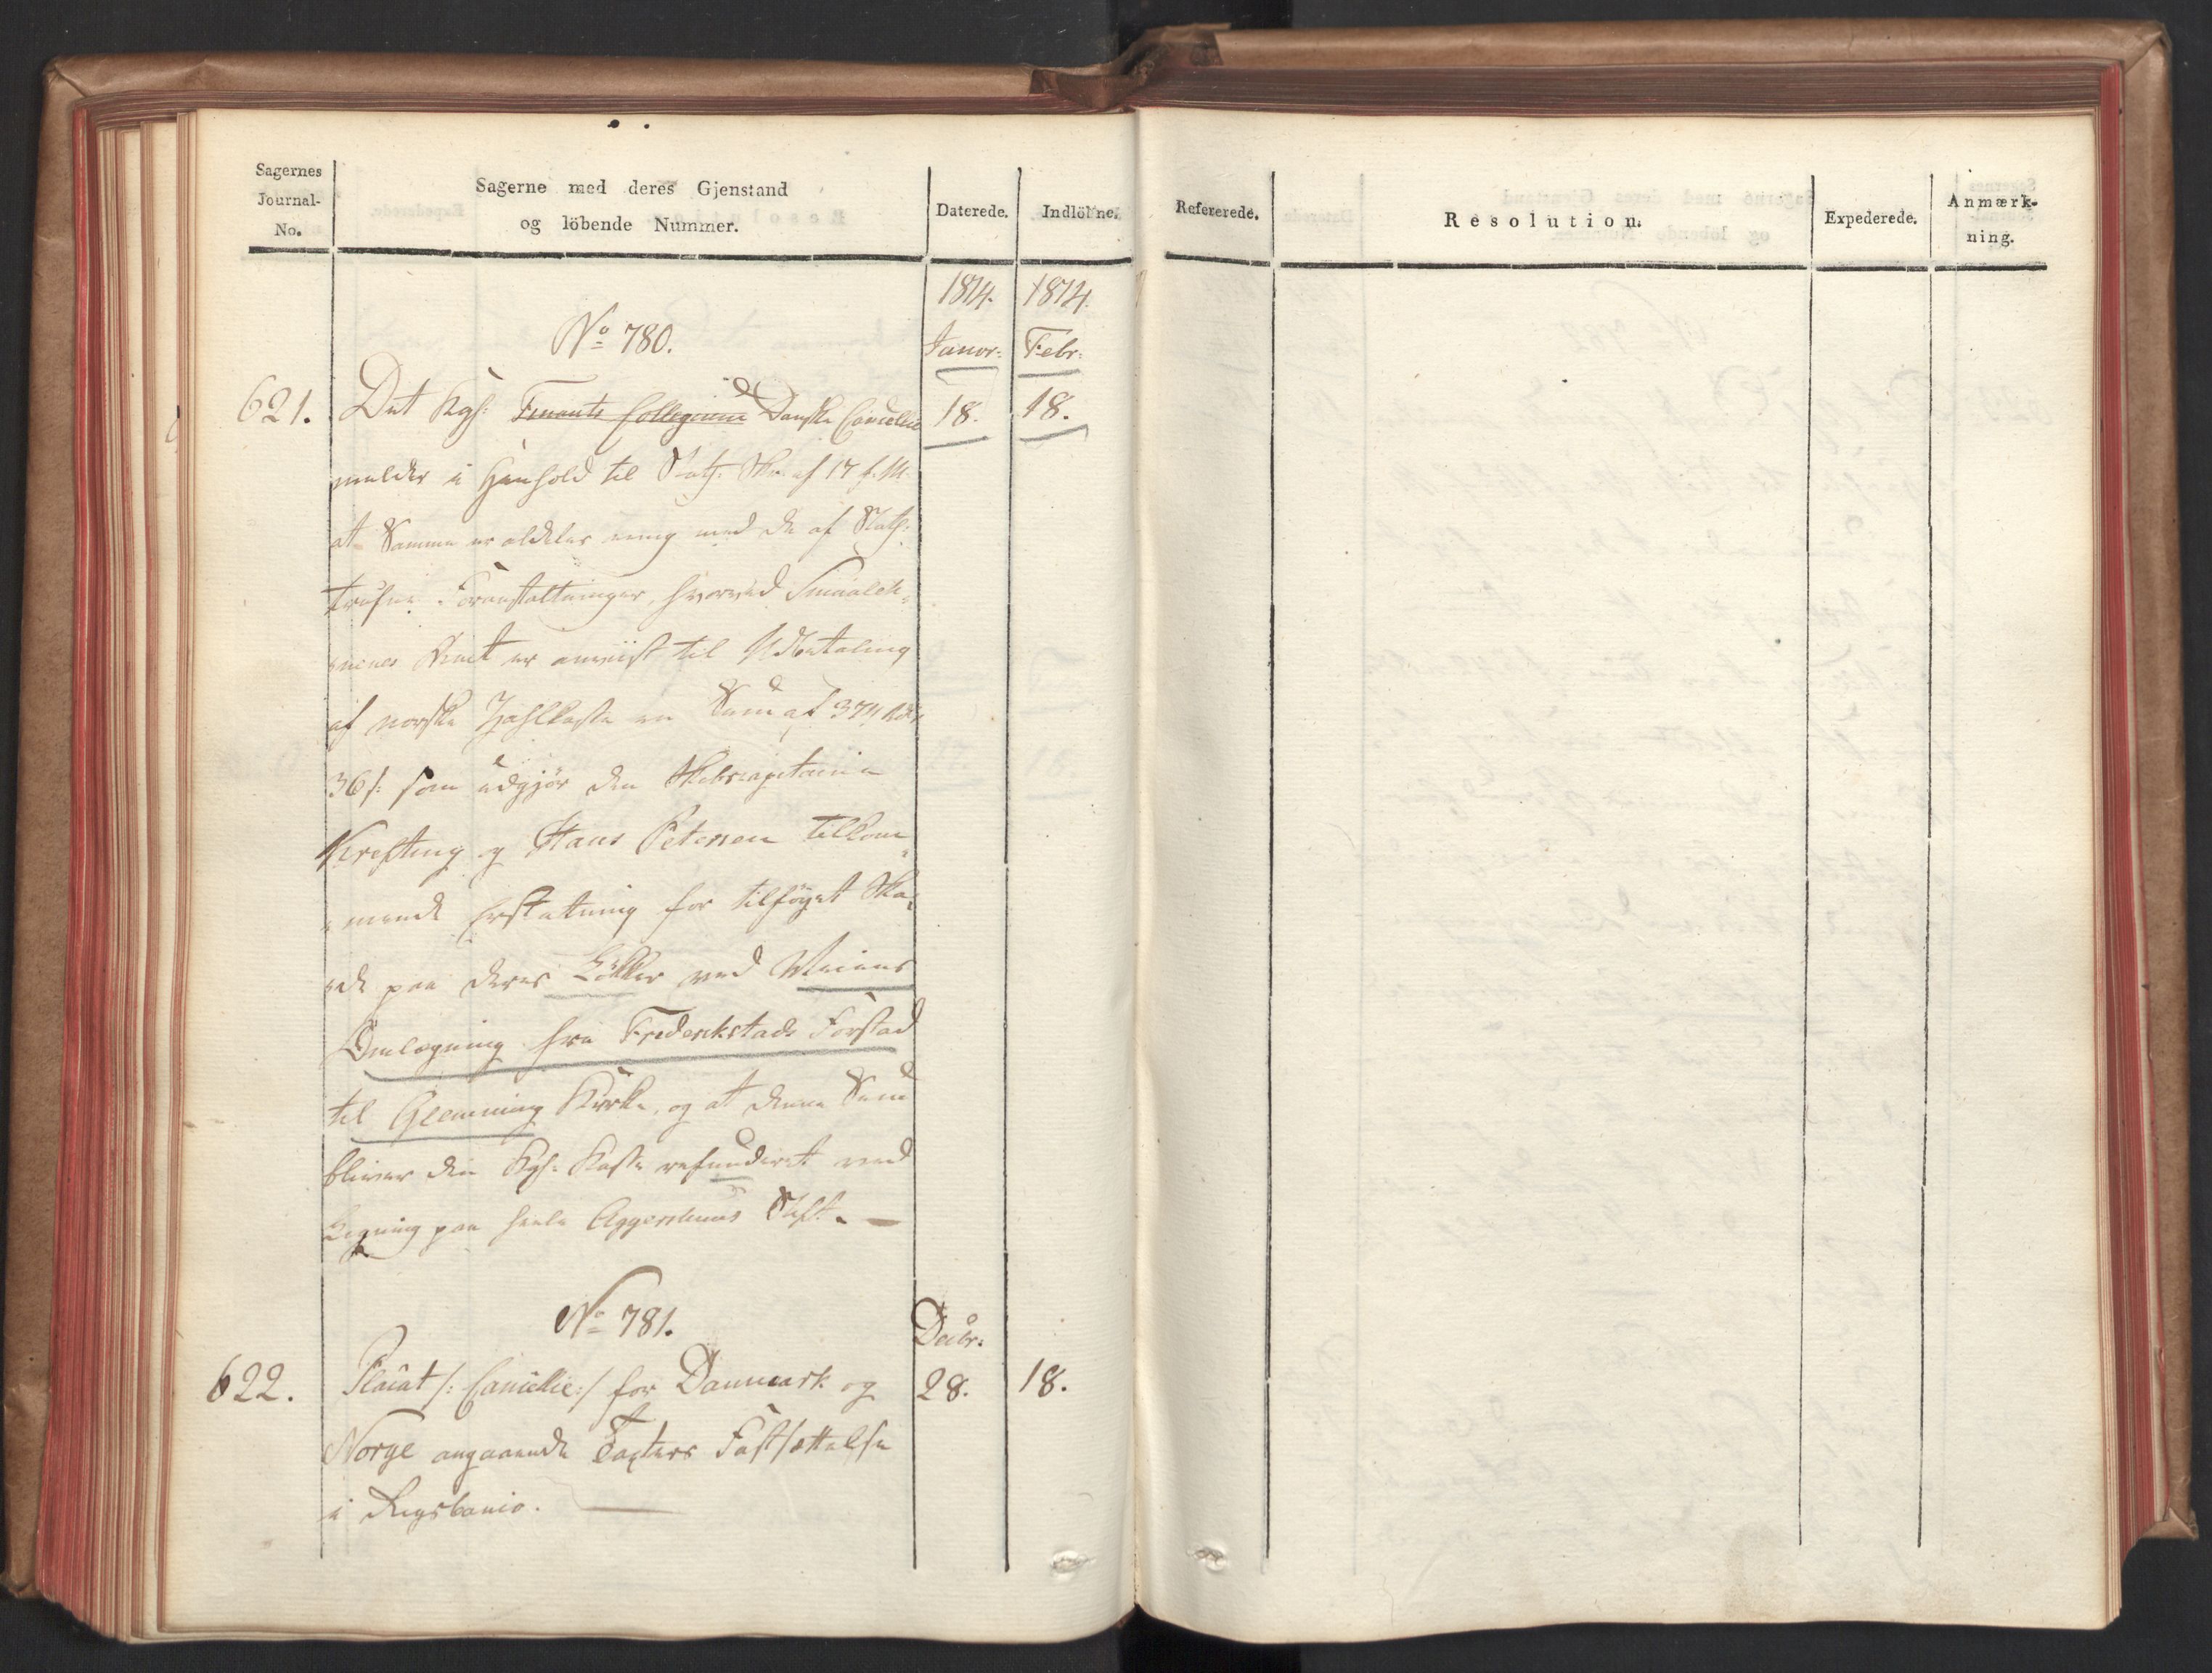 Sagernes
Journal-
No.
Sagerne med deres Gjenstand
og löbende Nummer.
Daterede.
Indlöbne.
Refererede.
Resolution.
Expederede.
Anmærk-
ning.
1814. 1814.
No 780.
Januar: Febr:
621. Det Kgl: Finants Collegium Danske Cancellie 18. 18.
melder i Henhold til Stath: Skr. af 17 f. M.
at Samme er aldeles enig med de af Stath:
trufne Foranstaltninger, hvorved Smaaleh-
nenes Amt er anviist til Udbetaling
af norske Zahlkasse en Sum af 374 Rdr
36 s: som udgjør den Skibscapitainerne
Krefting og Hans Petersen tilkom-
mende Erstatning for tilföyet Ska-
de paa deres Lökker ved Veiens
Omlægning fra Frederikstads Forstad
til Glemming Kirke, og at denne Sum
bliver den Kgl: Kasse refunderet ved
Ligning paa heele Aggershuus Stift. —
No 781.
Decbr:
622. Placat /: Cancellie :/ for Danmark og 28. 18.
Norge angaaende Taxters Fastsættelse
i Rigsbanco. —